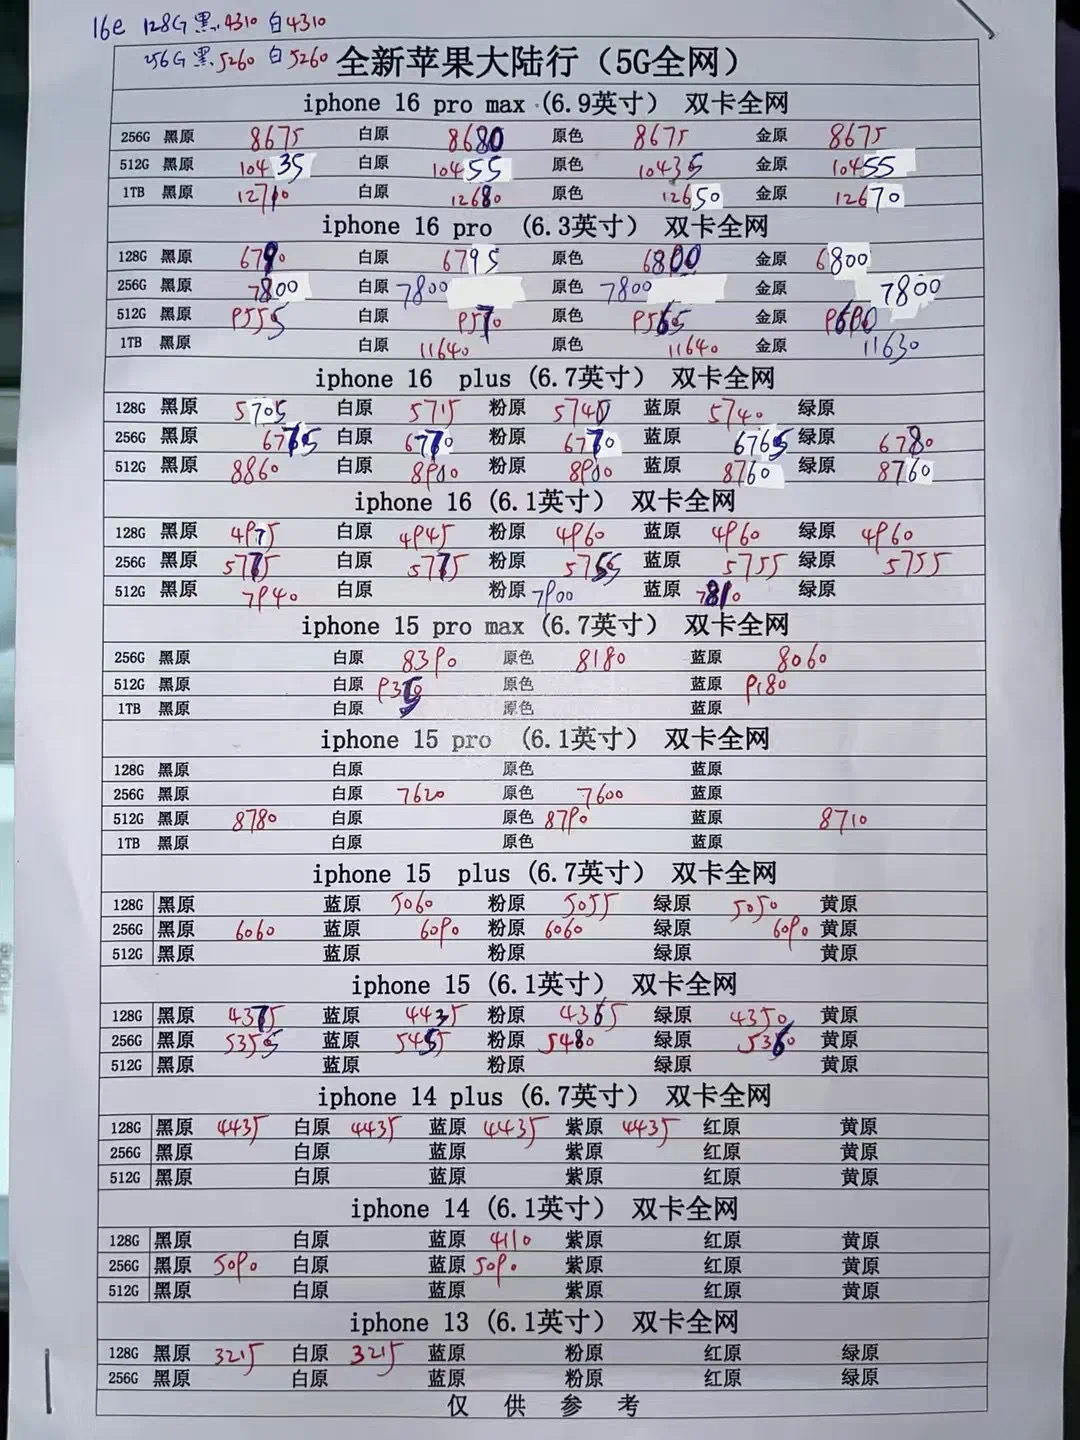 16e 128G 黑.4310 白4310
256G 黑.5260 白5260
全新苹果大陆行（5G全网）
iphone 16 pro max (6.9英寸） 双卡全网
256G 黑原 8675 白原 8680 原色 8675 金原 8675
512G 黑原 10435 白原 10455 原色 10435 金原 10455
1TB 黑原 12710 白原 12680 原色 12650 金原 12670
iphone 16 pro （6.3英寸） 双卡全网
128G 黑原 6790 白原 6795 原色 6800 金原 6800
256G 黑原 7800 白原 7800 原色 7800 金原 7800
512G 黑原 9555 白原 9570 原色 9565 金原
1TB 黑原 白原 11640 原色 11640 金原 11630
iphone 16 plus (6.7英寸） 双卡全网
128G 黑原 5705 白原 5715 粉原 5740 蓝原 5740 绿原
256G 黑原 6775 白原 6770 粉原 6770 蓝原 6765 绿原 6780
512G 黑原 8860 白原 8900 粉原 8900 蓝原 8760 绿原 8760
iphone 16 (6.1英寸） 双卡全网
128G 黑原 4975 白原 4945 粉原 4960 蓝原 4960 绿原 4960
256G 黑原 5775 白原 5775 粉原 5755 蓝原 5755 绿原 5755
512G 黑原 7940 白原 粉原 7900 蓝原 7810 绿原
iphone 15 pro max (6.7英寸） 双卡全网
256G 黑原 白原 8390 原色 8180 蓝原 8060
512G 黑原 白原 原色 蓝原 9180
1TB 黑原 白原 原色 蓝原
iphone 15 pro （6.1英寸） 双卡全网
128G 黑原 白原 原色 蓝原
256G 黑原 白原 7620 原色 7600 蓝原
512G 黑原 8780 白原 原色 8790 蓝原 8710
1TB 黑原 白原 原色 蓝原
iphone 15 plus (6.7英寸） 双卡全网
128G 黑原 蓝原 5060 粉原 5055 绿原 5050 黄原
256G 黑原 6060 蓝原 6090 粉原 6060 绿原 6090 黄原
512G 黑原 蓝原 粉原 绿原 黄原
iphone 15 (6.1英寸） 双卡全网
128G 黑原 4375 蓝原 4435 粉原 4365 绿原 4350 黄原
256G 黑原 5355 蓝原 5455 粉原 5480 绿原 5360 黄原
512G 黑原 蓝原 粉原 绿原 黄原
iphone 14 plus (6.7英寸） 双卡全网
128G 黑原 4435 白原 4435 蓝原 4435 紫原 4435 红原 黄原
256G 黑原 白原 蓝原 紫原 红原 黄原
512G 黑原 白原 蓝原 紫原 红原 黄原
iphone 14 (6.1英寸） 双卡全网
128G 黑原 白原 蓝原 4110 紫原 红原 黄原
256G 黑原 5090 白原 蓝原 5090 紫原 红原 黄原
512G 黑原 白原 蓝原 紫原 红原 黄原
iphone 13 (6.1英寸） 双卡全网
128G 黑原 3215 白原 3215 蓝原 粉原 红原 绿原
256G 黑原 白原 蓝原 粉原 红原 绿原
仅 供 参 考